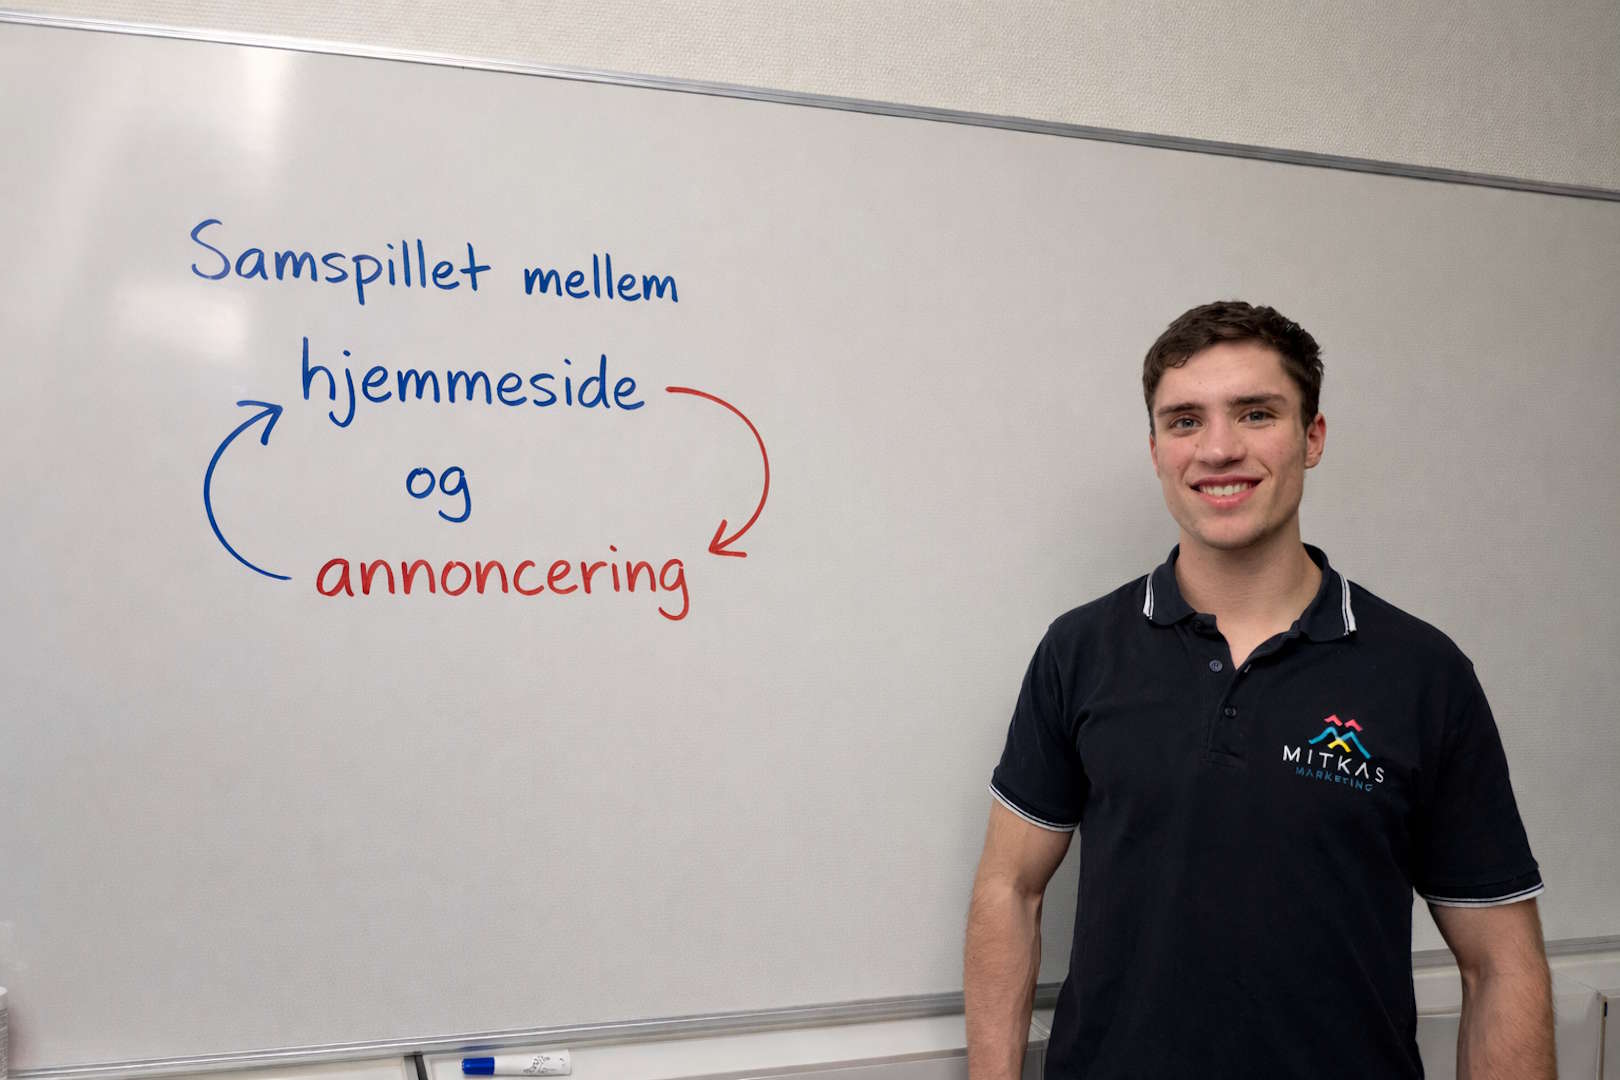 Samspillet mellem
hjemmeside
og
annoncering
MITKAS
MARKETING